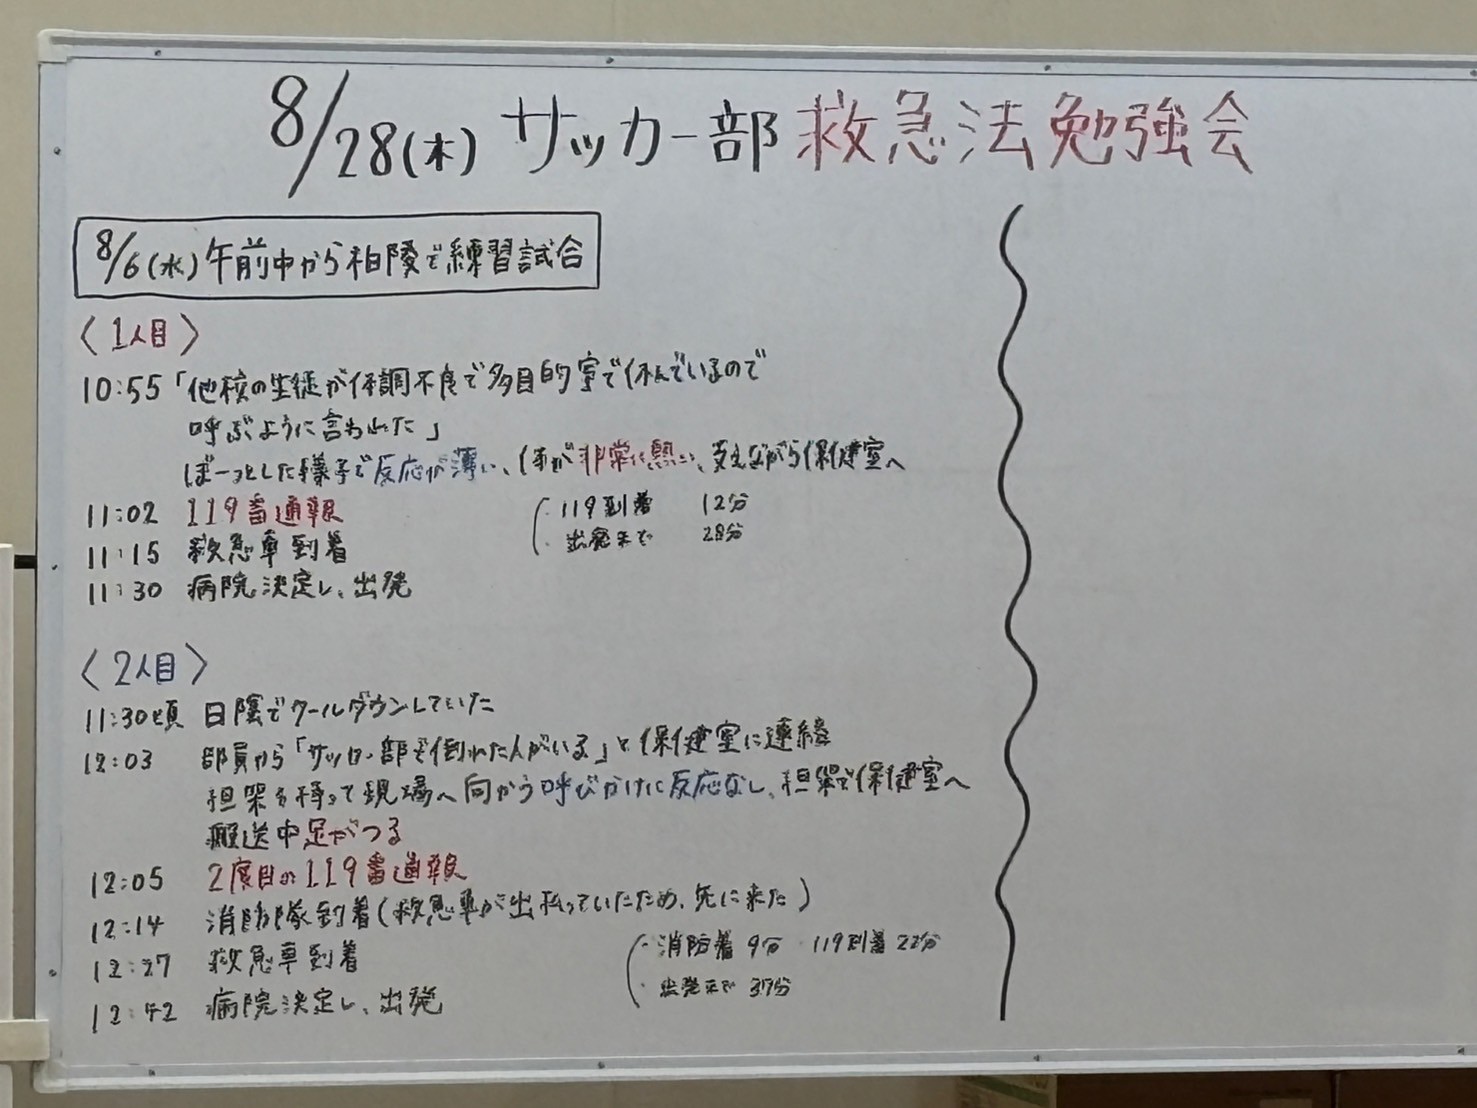 8/28(木) サッカー部 救急法勉強会
8/6(水) 午前中から柏陵で練習試合
〈1人目〉
10:55 「他校の生徒が体調不良で多目的室で休んでいるので
呼ぶように言われた」
ぼーっとした様子で反応が薄い、体が非常に熱い、支えながら保健室へ
11:02 119番通報
11:15 救急車到着
11:30 病院決定し、出発
・119到着 12分
・出発まで 28分
〈2人目〉
11:30頃 日陰でクールダウンしていた
12:03 部員から「サッカー部で倒れた人がいる」と保健室に連絡
担架を持って現場へ向かう 呼びかけに反応なし、担架で保健室へ
搬送中足がつる
12:05 2度目の119番通報
12:14 消防隊到着(救急車が出払っていたため、先に来た)
12:27 救急車到着
12:42 病院決定し、出発
・消防着 9分 ・119到着 22分
・出発まで 37分